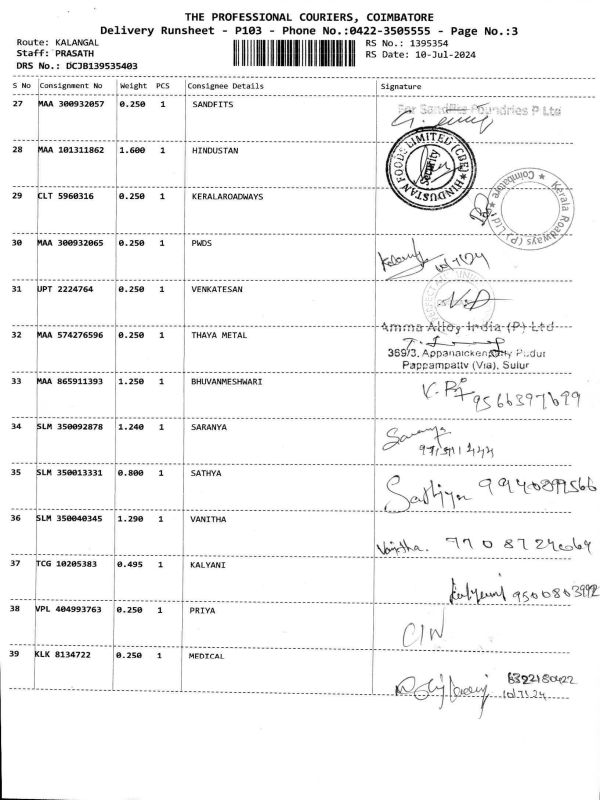 THE PROFESSIONAL COURIERS, COIMBATORE
Delivery Runsheet - P103 - Phone No.:0422-3505555 - Page No.:3
Route: KALANGAL
Staff: PRASATH
DRS No.: DCJB139535403
RS No.: 1395354
RS Date: 10-Jul-2024
S No Consignment No Weight PCS Consignee Details Signature
27 MAA 300932057 0.250 1 SANDFITS
For Sandfits Foundries P Ltd
28 MAA 101311862 1.600 1 HINDUSTAN
HINDUSTAN FOODS LIMITED (CBE)
Security
29 CLT 5960316 0.250 1 KERALAROADWAYS
Kerala Roadways (P) Ltd. Coimbatore
30 MAA 300932065 0.250 1 PWDS
31 UPT 2224764 0.250 1 VENKATESAN
32 MAA 574276596 0.250 1 THAYA METAL
Amma Alloy India (P) Ltd
369/3, Appanaickenpatty Pudur
Pappampatty (Via), Sulur
33 MAA 865911393 1.250 1 BHUVANMESHWARI
9566397699
34 SLM 350092878 1.240 1 SARANYA
Saranya
35 SLM 350013331 0.800 1 SATHYA
Sathiya 9940899566
36 SLM 350040345 1.290 1 VANITHA
Vanitha.
37 TCG 10205383 0.495 1 KALYANI
Kalyani 9500803992
38 VPL 404993763 0.250 1 PRIYA
C/N
39 KLK 8134722 0.250 1 MEDICAL
6322180422
10/7/24